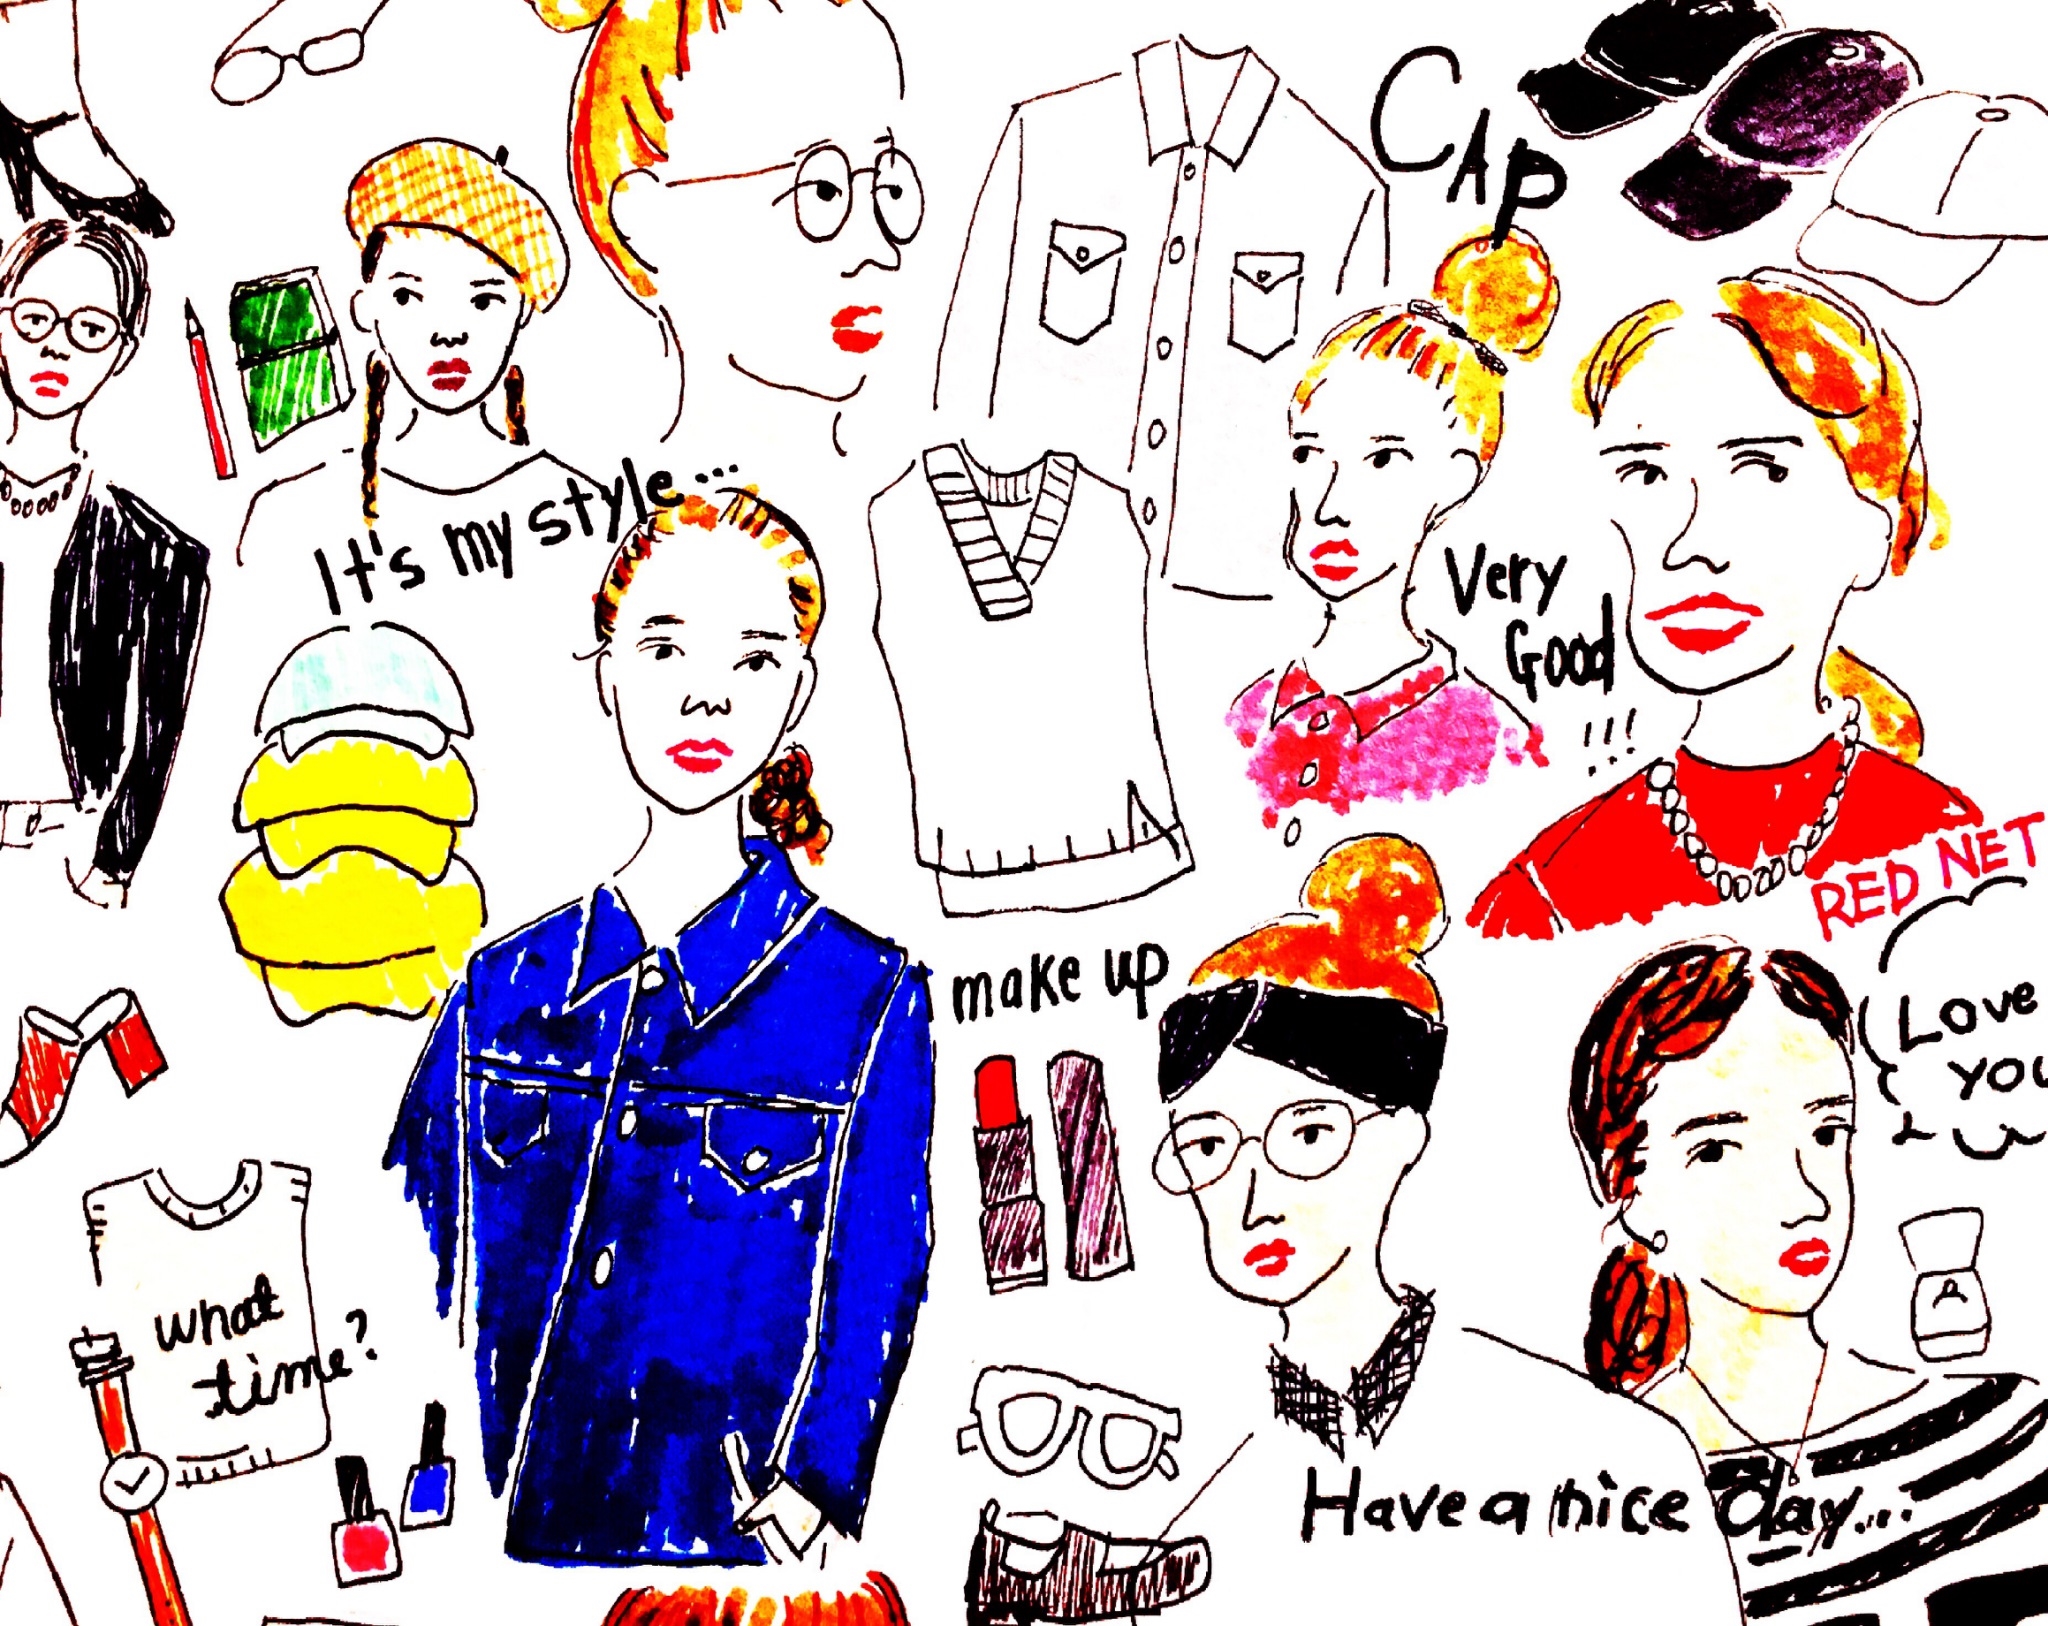 CAP
It's my style...
Very
Good
!!!
RED NET
make up
Love
you
what
time?
Have a nice day...